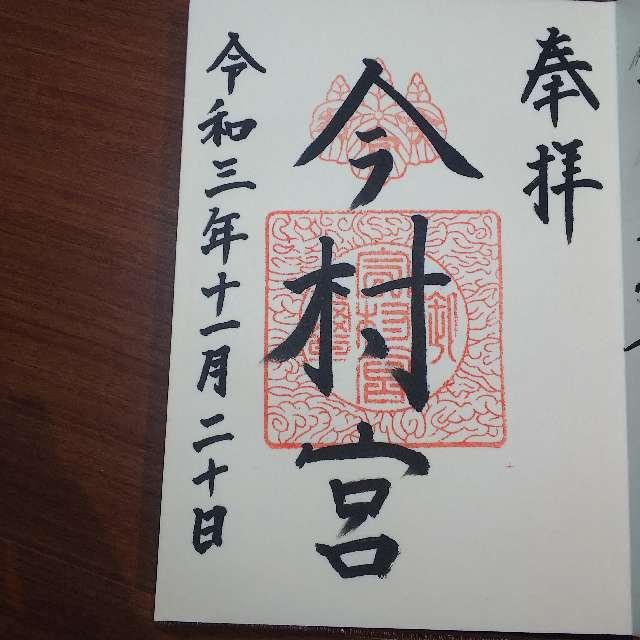 奉拝
今村宮
令和三年十一月二十日